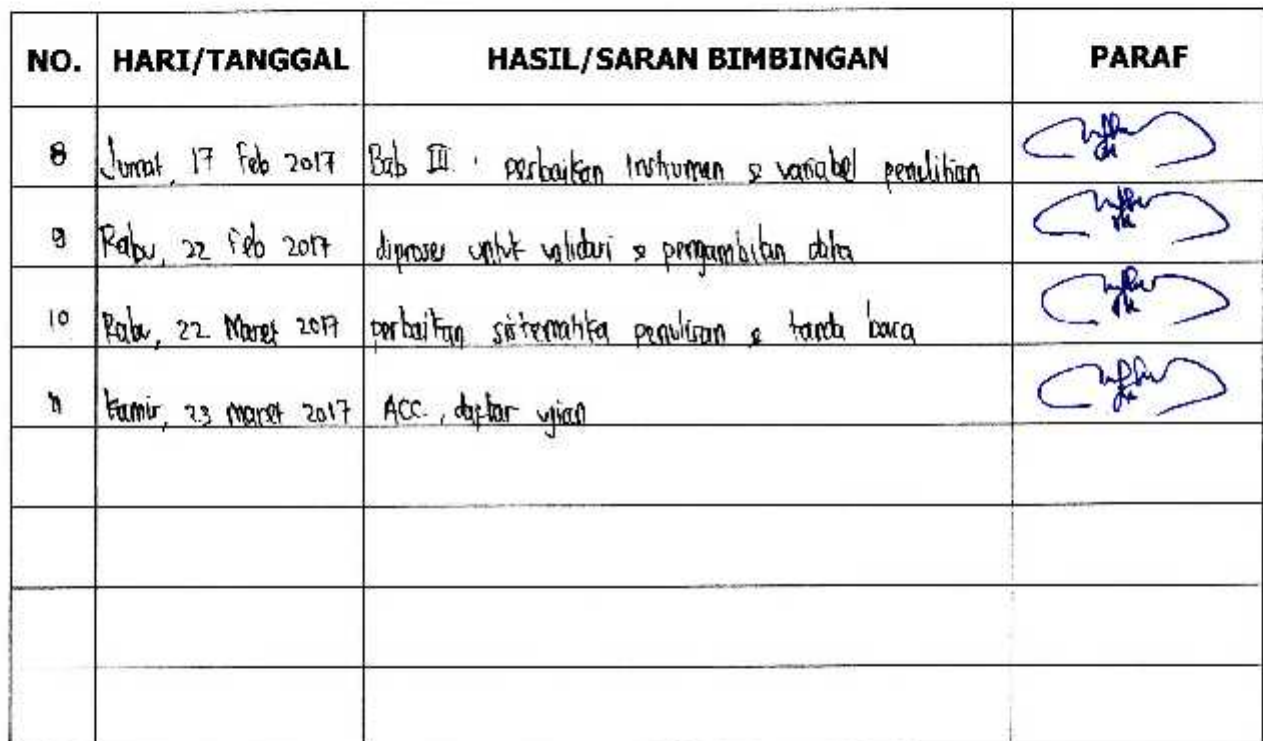 NO. HARI/TANGGAL HASIL/SARAN BIMBINGAN PARAF
8 Jumat, 17 Feb 2017 Bab III : perbaikan instrumen & variabel penelitian
9 Rabu, 22 Feb 2017 diproses untuk validasi & pengambilan data
10 Rabu, 22 Maret 2017 perbaikan sistematika penulisan & tanda baca
11 Kamis, 23 Maret 2017 ACC, daftar ujian